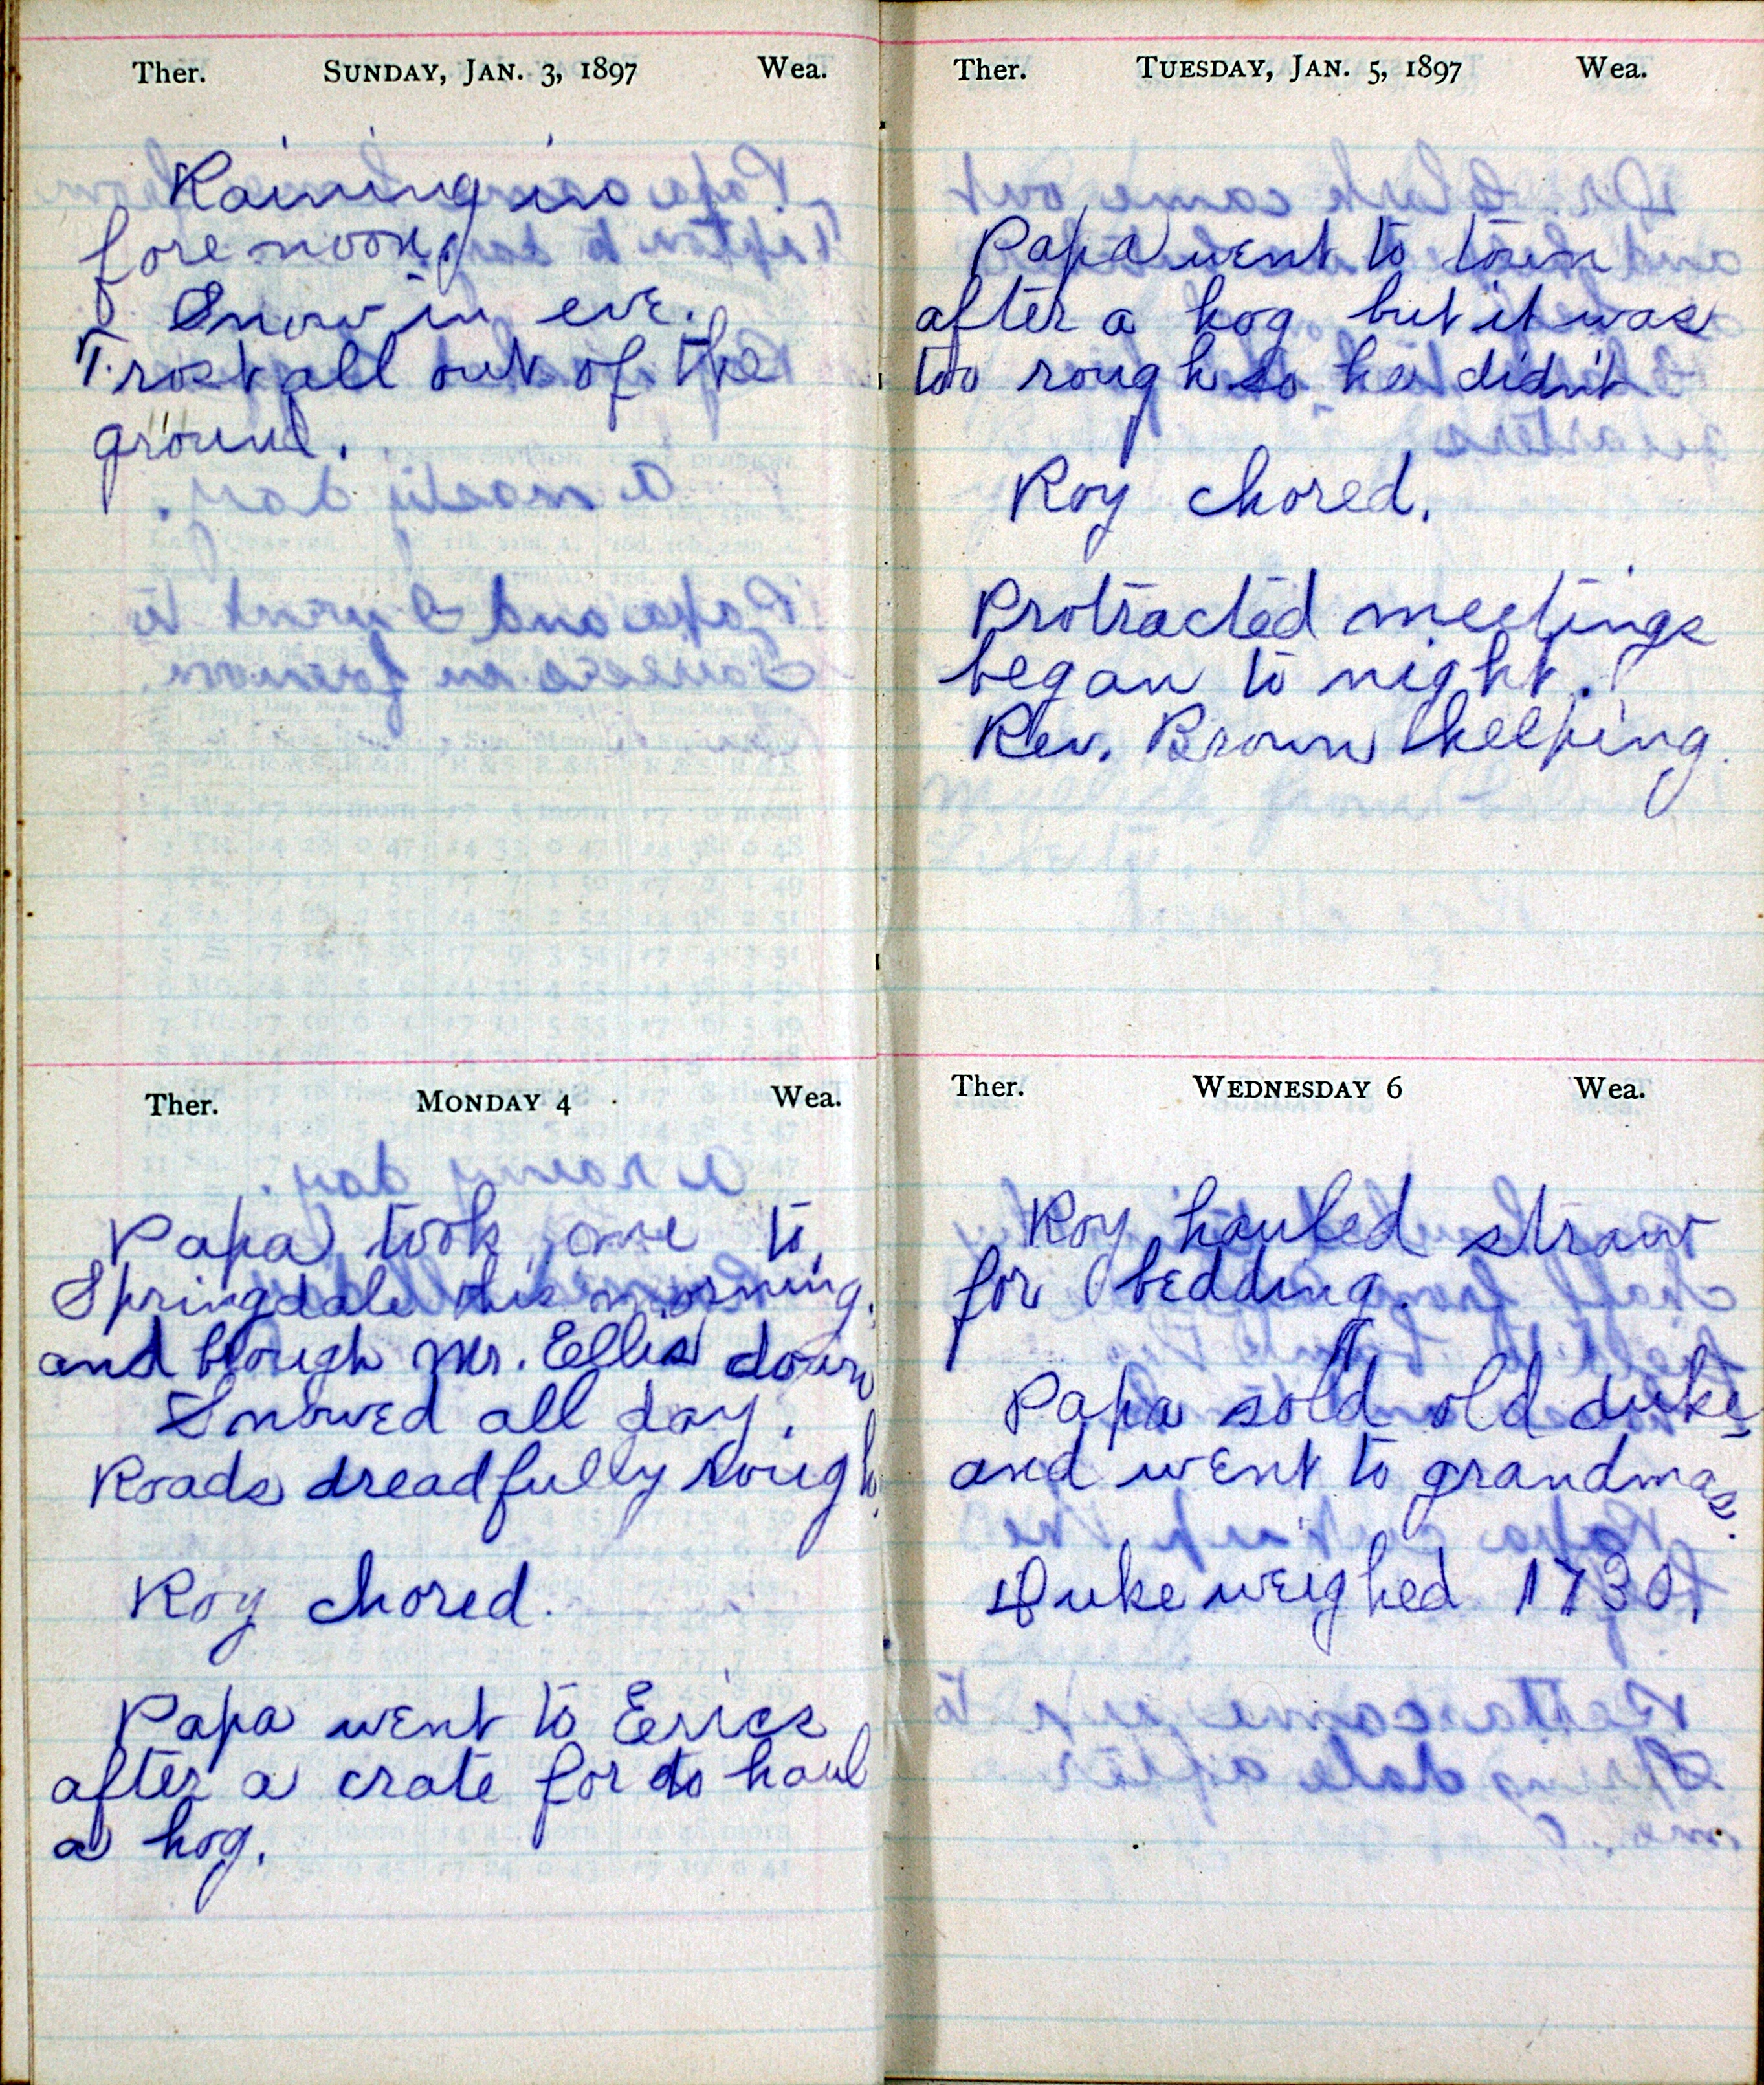 Ther. SUNDAY, JAN. 3, 1897 Wea.
Raining in
forenoon.
Snow in eve.
Frost all out of the
ground.
Ther. MONDAY 4 Wea.
Papa took me to
Springdale this morning.
and brough Mr. Ellis down
Snowed all day.
Roads dreadfully rough.
Roy chored.
Papa went to Erics
after a crate for to haul
a hog.
Ther. TUESDAY, JAN. 5, 1897 Wea.
Papa went to town
after a hog but it was
too rough so he didn't
Roy chored.
Protracted meetings
began to night.
Rev. Brown helping.
Ther. WEDNESDAY 6 Wea.
Roy hauled straw
for bedding.
Papa sold old duke
and went to grandmas.
Duke weighed 1730.